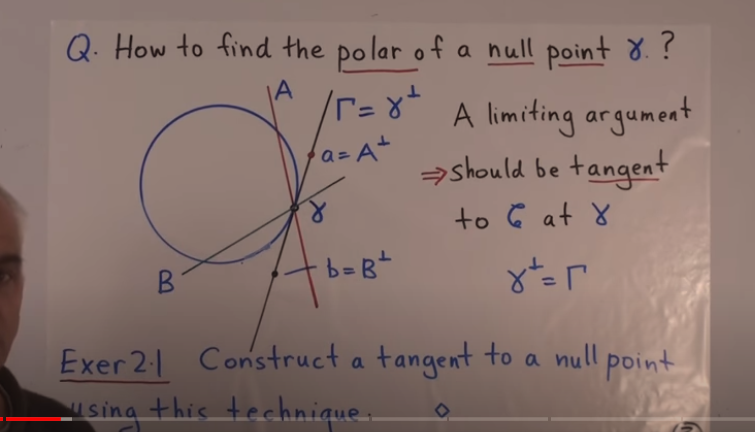 Q. How to find the polar of a null point γ. ?
A
Γ = γ⊥
a = A⊥
γ
B
b = B⊥
A limiting argument
⇒ should be tangent
to C at γ
γ⊥ = Γ
Exer 2.1 Construct a tangent to a null point
using this technique. ◇